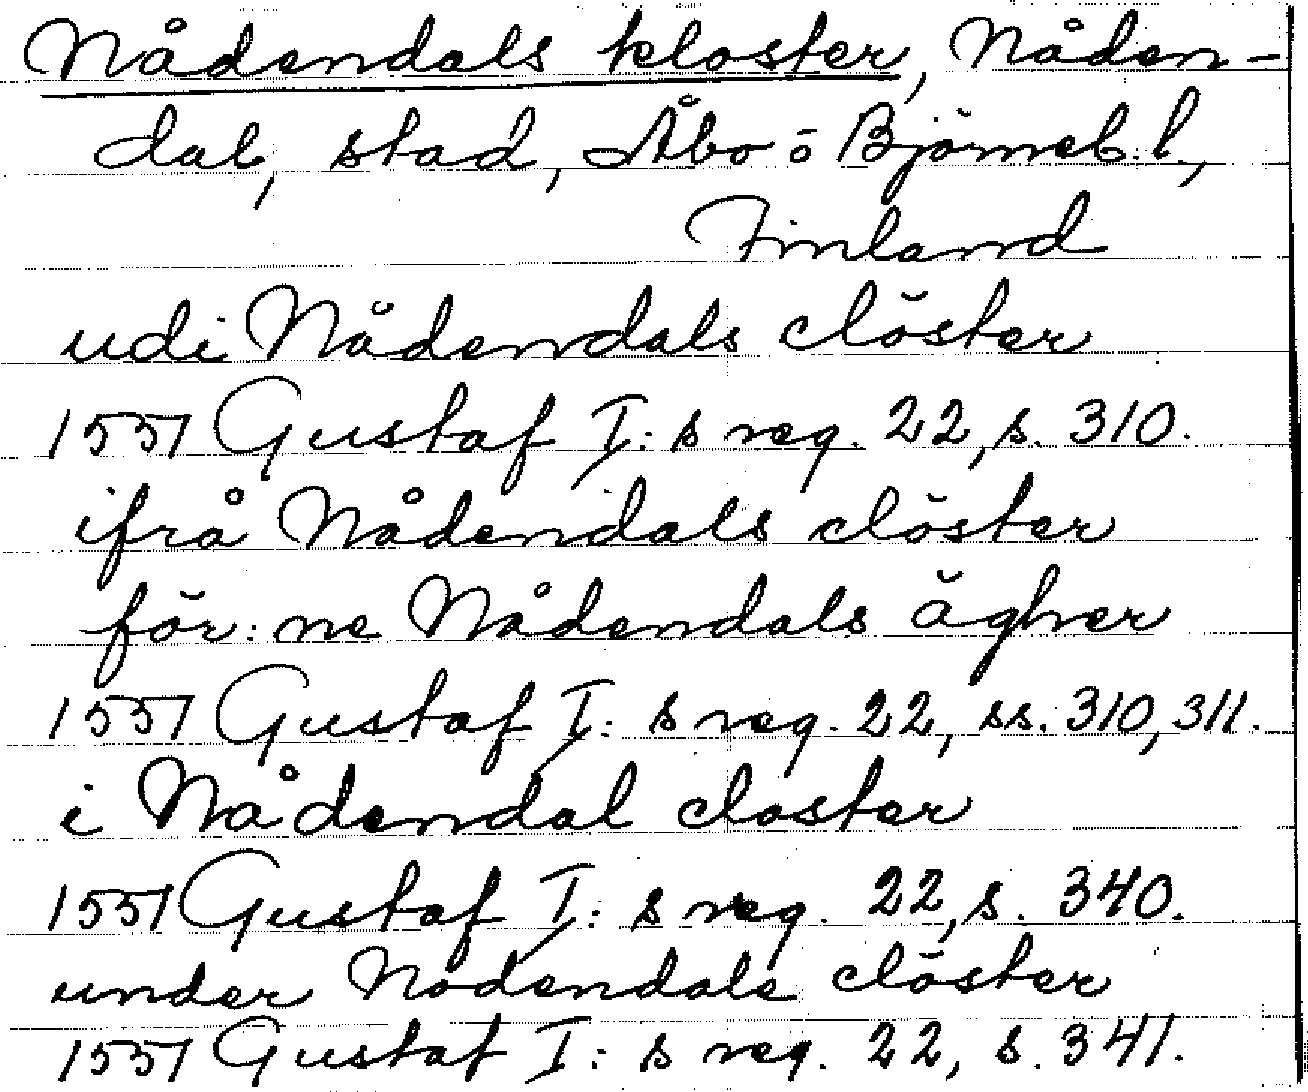 Nådendals kloster, Nåden-
dal, stad, Åbo o Björneb. l.,
Finland
udi Nådendals clöster
1551 Gustaf I:s reg. 22, s. 310.
ifrå Nådendals clöster
för:ne Nådendals ägher
1551 Gustaf I:s reg. 22, ss. 310, 311.
i Nådendal closter
1551 Gustaf I:s reg. 22, s. 340.
under Nodendals clöster
1551 Gustaf I:s reg. 22, s. 341.